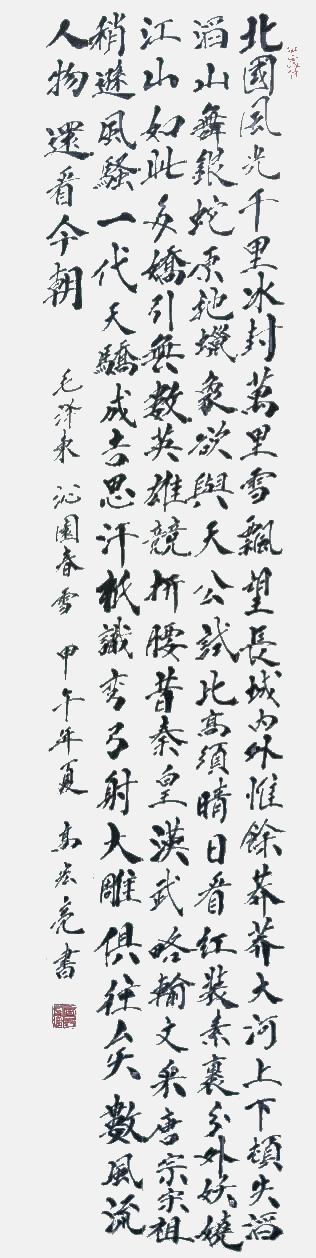 北國風光千里冰封萬里雪飄望長城內外惟餘莽莽大河上下頓失滔
滔山舞銀蛇原馳蠟象欲與天公試比高須晴日看紅裝素裹分外妖嬈
江山如此多嬌引無數英雄競折腰昔秦皇漢武略輸文采唐宗宋祖
稍遜風騷一代天驕成吉思汗祇識彎弓射大雕俱往矣數風流
人物還看今朝 毛澤東 沁園春雪 甲午年夏 高宏亮書